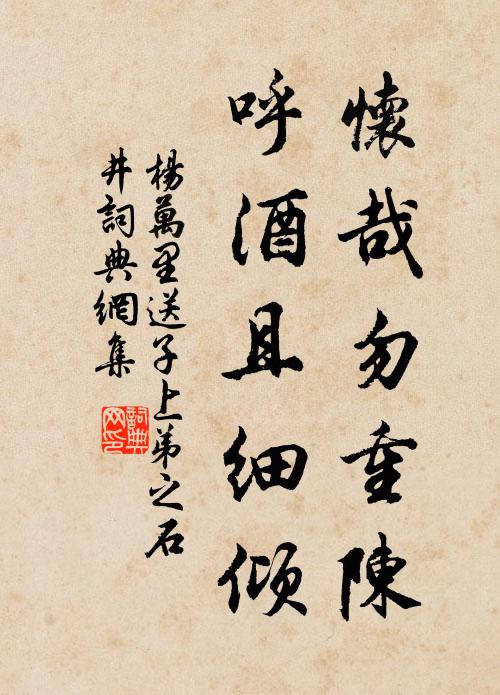 懷哉勿重陳
呼酒且細傾
楊萬里送子上弟之石
井詞典網集
詞典网印